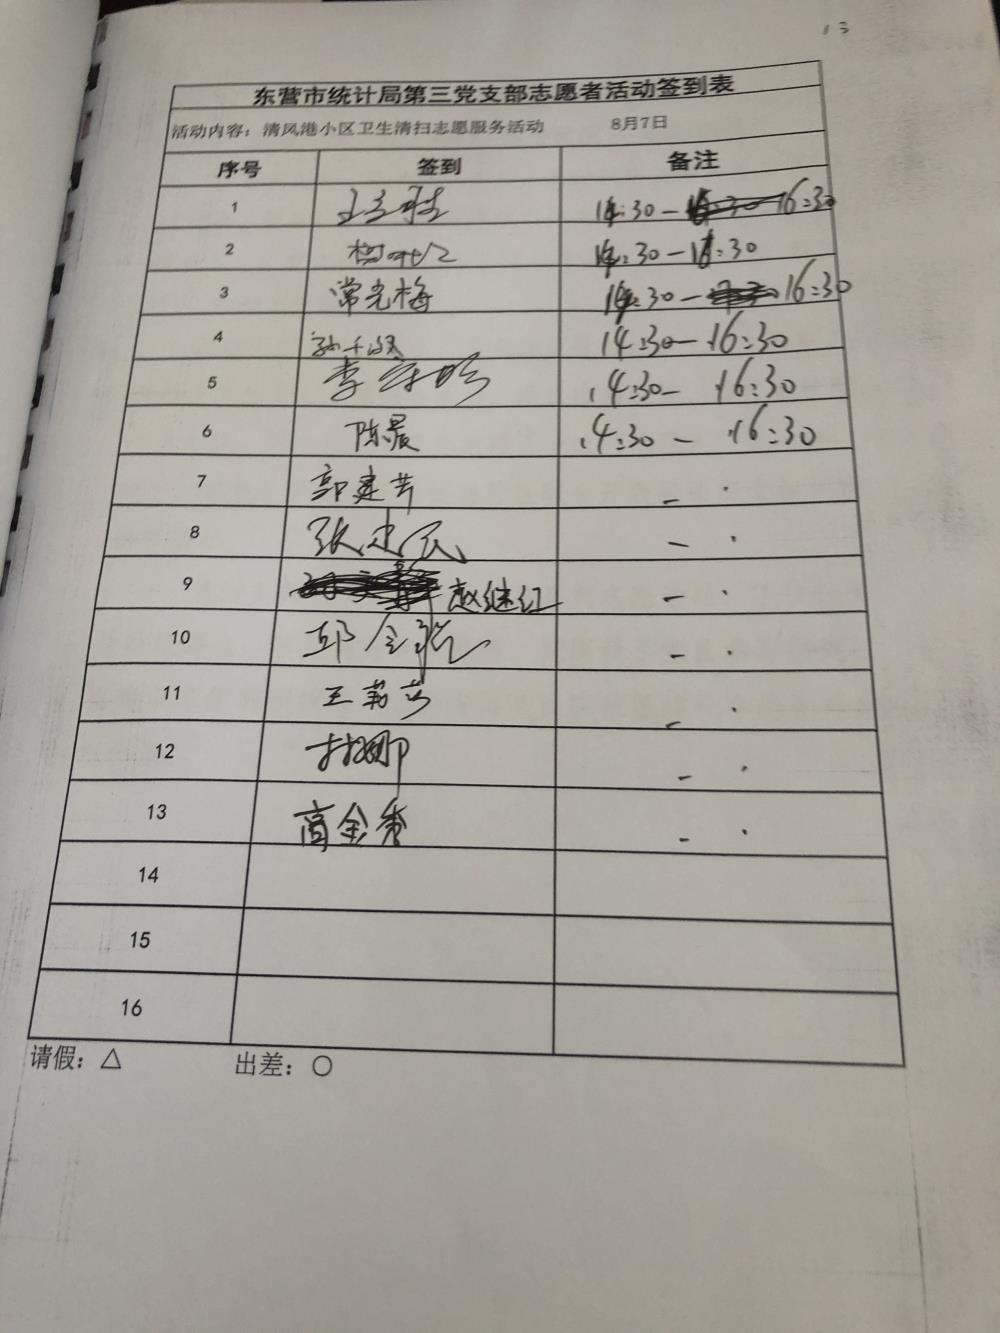 13
东营市统计局第三党支部志愿者活动签到表
活动内容：清风港小区卫生清扫志愿服务活动 8月7日
序号 签到 备注
1 14:30-16:30
2 14:30-16:30
3 常光梅 14:30-16:30
4 14:30-16:30
5 李 14:30-16:30
6 陈晨 14:30-16:30
7 郭建芳 - .
8 张建民 - .
9 赵继红 - .
10 邱 - .
11 王 - .
12 娜 - .
13 高金秀 - .
14
15
16
请假：△ 出差：○